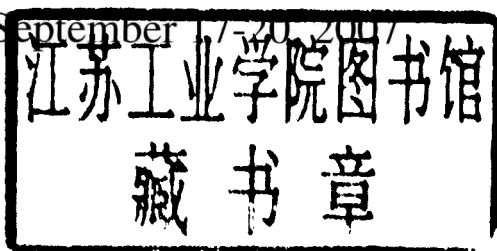 September 17-20, 2007
江苏工业学院图书馆
藏书章